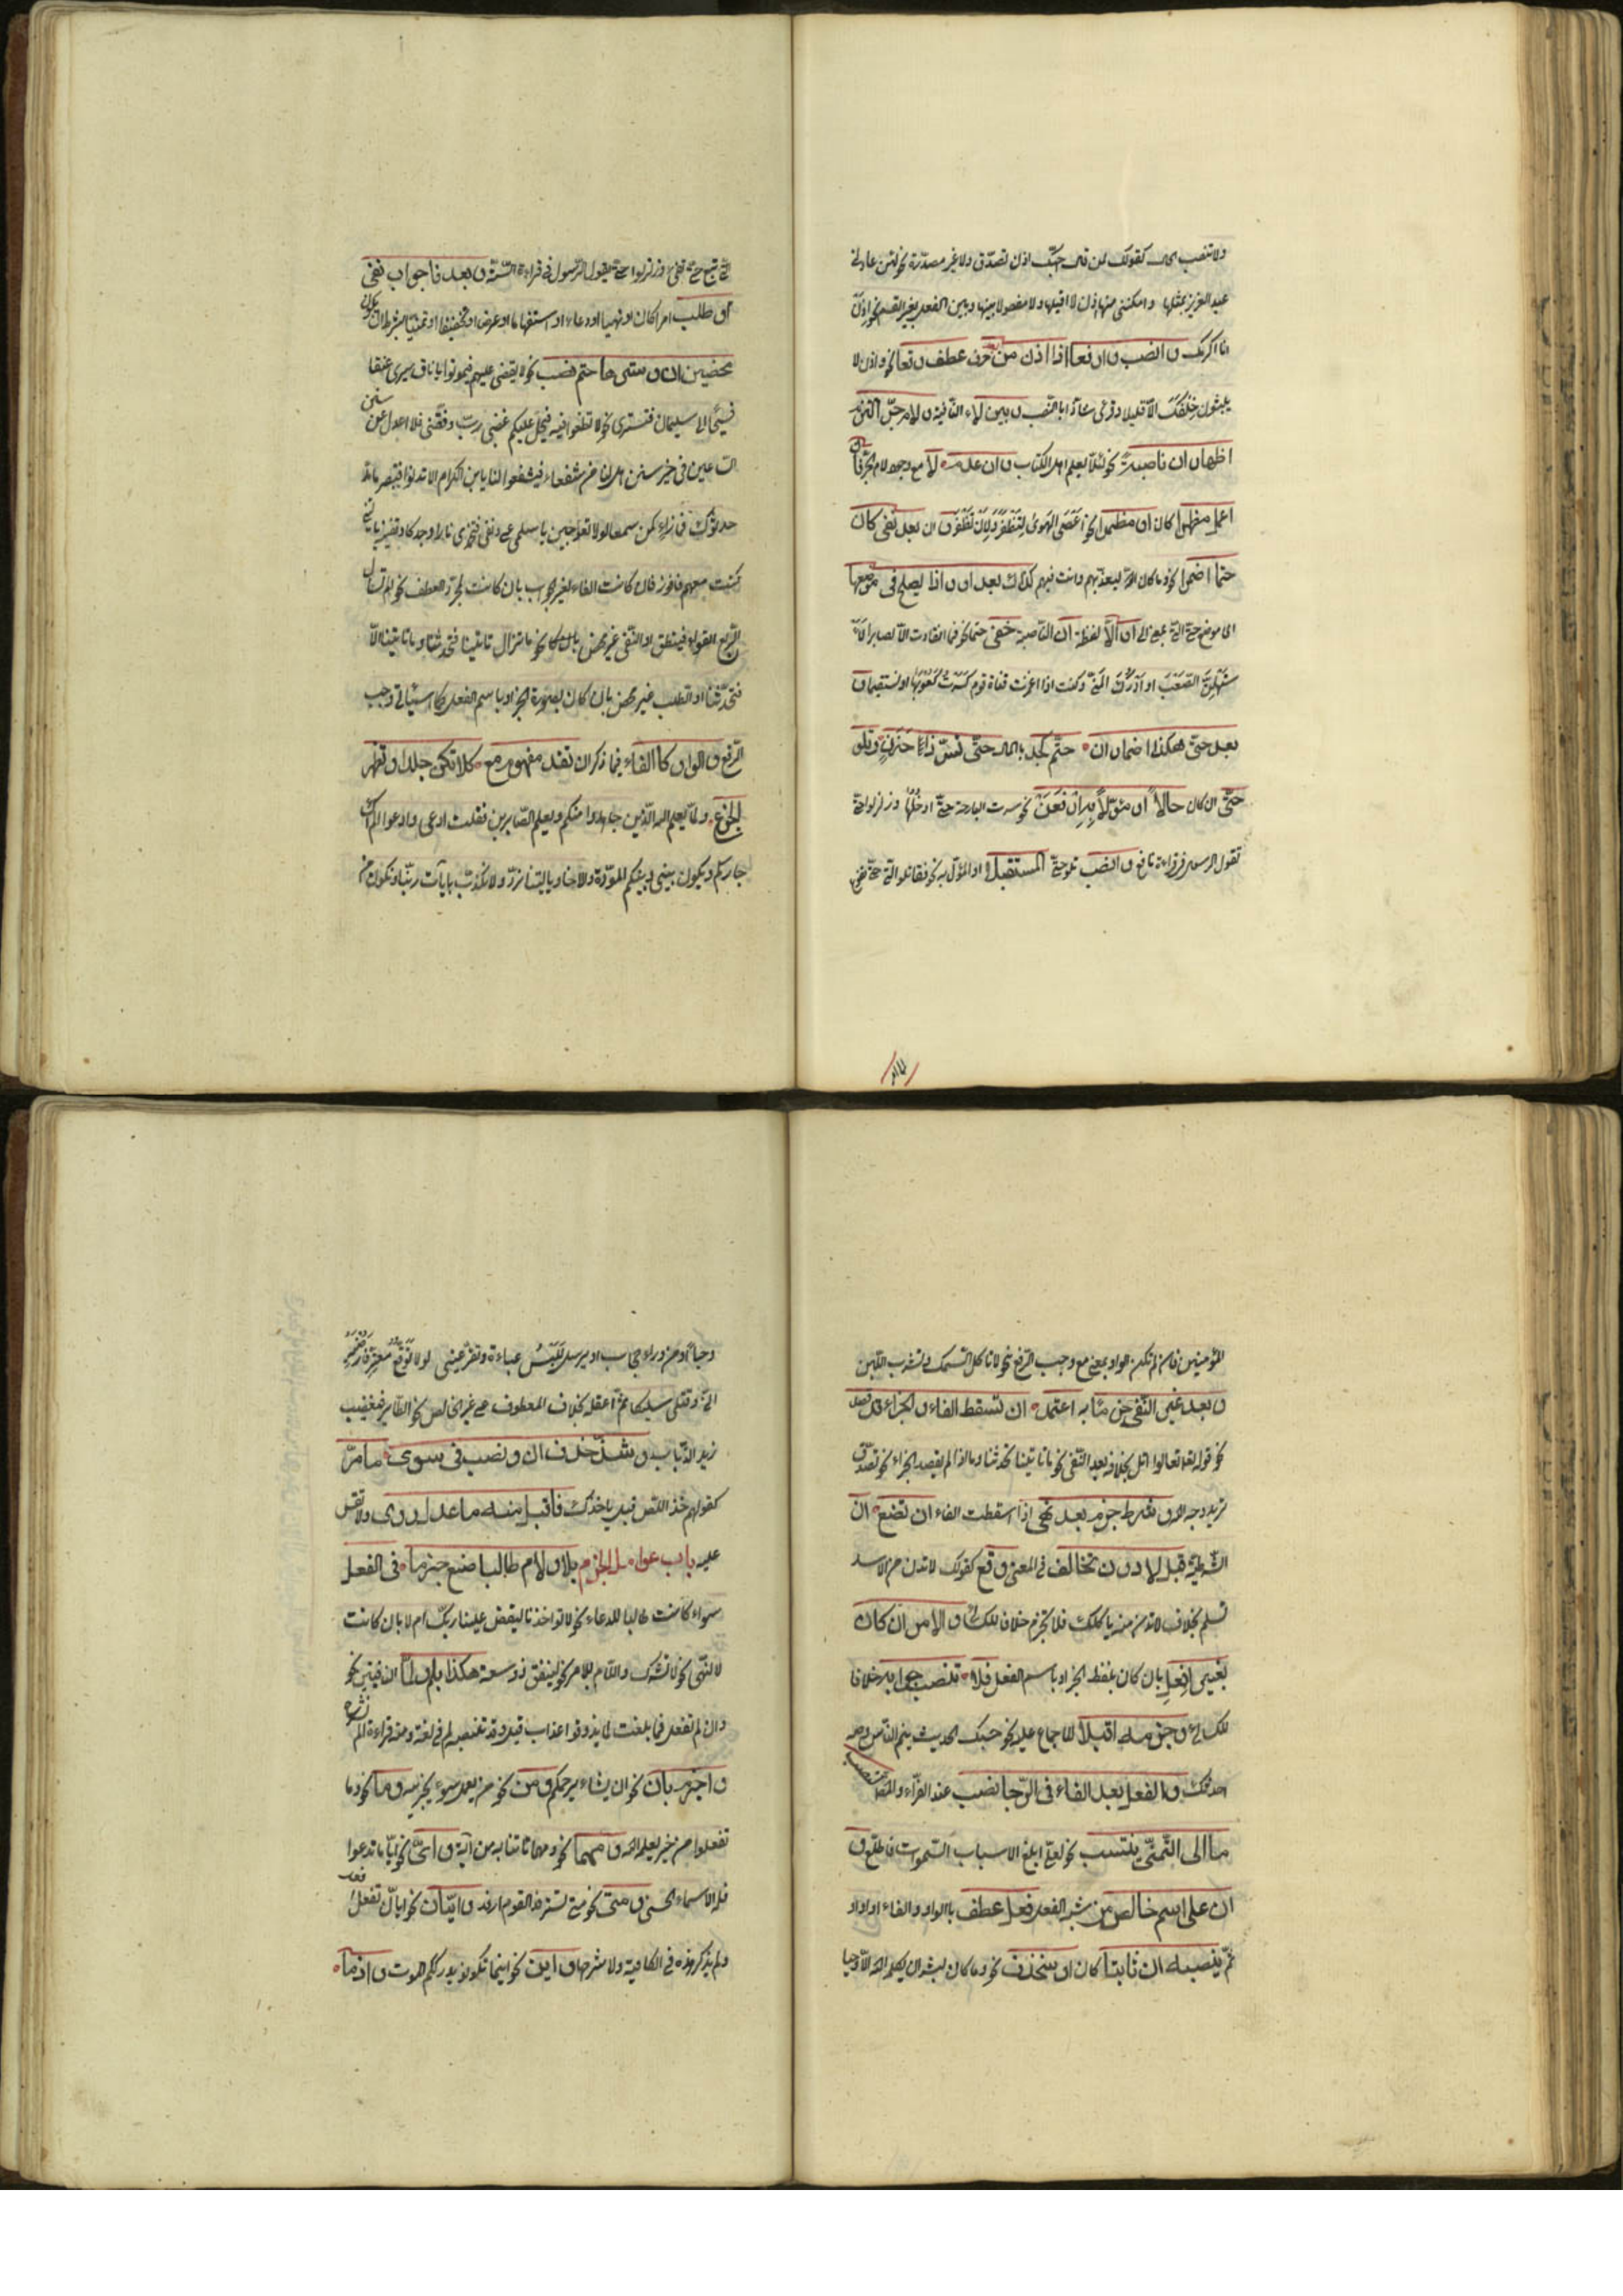 ولا تنصب الحال كقولك لمن قال احبّك اذن تصدّق ولا غير مصدّرة نحو لئن عاد لي
عبد العزيز بمثلها وامكنني منها اذن لا اقيلها ولا مفصولا بينها وبين الفعل بغير القسم نحو اذن
انا اكرمك وانصب وارفعا اذا اذن من بعد حرف عطف وقعا نحو واذن لا
يلبثون خلفك الّا قليلا وقرئ شاذّا بالنصب وبين لا النافية ولام جرّ التزم
اظهار ان ناصبة نحو لئلّا يعلم اهل الكتاب وان عدم لا مع وجود لام الجرّ فان
اعمل مظهرا كان او مضمرا نحو اعصى الهوى لتظفر ولان تظفر وان بعد نفي كان
حتما اضمرا نحو وما كان الله ليعذّبهم وانت فيهم كذاك بعد او اذا يصلح في موضعها
اي موضع حتّى الّتي بمعنى الى او الّا لفظة ان الناصبة خفي حتما نحو فما انقادت الآمال الّا لصابر
لاستسهلنّ الصعب او ادرك المنى وكنت اذا غمزت قناة قوم كسرت كعوبها او تستقيما و
بعد حتّى هكذا اضمار ان حتم كجد بالمال حتّى تسرّ ذا حزن وتلو
حتّى ان كان حالا او مؤوّلا به ارفعنّ نحو سرت البارحة حتّى ادخلها وزلزلوا حتّى
يقول الرسول في قراءة نافع وانصب تلو حتّى المستقبلا او المؤوّل به نحو فقاتلوا الّتي
حتّى تفيء وزلزلوا حتّى يقول الرّسول في قراءة الستّة وبعد فا جواب نفي
او طلب امرا كان او نهيا او دعاء او استفهاما او عرضا او تحضيضا او تمنّيا بشرط ان يكونا
محضين ان وسترها حتم نصب نحو لا يقضى عليهم فيموتوا يا ناق سيري عنقا
فسيحا الى سليمان فنستريحا لا تطغوا فيه فيحلّ عليكم غضبي ربّ وفّقني فلا اعدل عن سنن
الساعين في خير سنن هل لنا من شفعاء فيشفعوا لنا يا ابن الكرام الا تدنو فتبصر ما قد
حدّثوك فما راء كمن سمعا لولا تعوجين يا سلمى على دنف فتخمدي نار وجد كاد يفنيه يا ليتني
كنت معهم فافوز فان كانت الفاء لغير الجواب بان كانت لمجرّد العطف نحو الم تسأل
الربع القواء فينطق او النّفي غير محض بان كان نحو ما تزال تأتينا فتحدّثنا وما تأتينا الّا
فتحدّثنا او الطلب غير محض بان كان بصورة الخبر او باسم الفعل كما سيأتي وجب
الرّفع والواو كالفاء فيما ذكر ان تفد مفهوم مع كلا تكن جلدا وتظهر
الجزع ولمّا يعلم الله الّذين جاهدوا منكم ويعلم الصّابرين فقلت ادعي وادعو الم اك
جاركم ويكون بيني وبينكم المودّة والاخاء يا ليتنا نردّ ولا نكذّب بآيات ربّنا ونكون من
المؤمنين فان لم تكن الواو بمعنى مع وجب الرّفع نحو لا تأكل السّمك وتشرب اللّبن
وبعد غير النّفي جزما به اعتمد ان تسقط الفاء والجزاء قد قصد
نحو قوله تعالى قل تعالوا اتل بخلافه بعد النّفي نحو ما تأتينا تحدّثنا وما اذا لم يقصد الجزاء نحو تصدّق
تريد وجه الله وشرط جزم بعد نهي اذا اسقطت الفاء ان تضع ان
الشّرطيّة قبل لا دون تخالف في المعنى وقع كقولك لا تدن من الاسد
تسلم بخلاف لا تدن منه يأكلك فلا تجزم خلافا للكسائي والامر ان كان
بغير افعل بان كان بلفظ الخبر او باسم الفعل فلا تنصب جوابه خلافا
للكسائي وجزمه اقبلا للاجماع عليه نحو حسبك الحديث ينم النّاس وصه
احدّثك والفعل بعد الفاء في الرّجا نصب عند الفرّاء والمصنّف كنصب
ما الى التّمنّي ينتسب نحو لعلّي ابلغ الاسباب اسباب السّموات فاطّلع و
ان على اسم خالص من شبه الفعل فعل عطف بالواو والفاء او او او
ثمّ ينصبه ان ثابتا كان او منحذف نحو وما كان لبشر ان يكلّمه الله الّا وحيا
وحيا او من وراء حجاب او يرسل للبس عباءة وتقرّ عيني لولا توقّع معترّ فارضيه
انّي وقتلي سليكا ثمّ اعقله بخلاف المعطوف على غير الخالص نحو الطّاير فيغضب
زيد الذّباب وشذّ حذف ان ونصب في سوى ما مرّ
كقولهم خذ اللصّ قبل يأخذك فاقبل منه ما عدل روى ولا تقس
عليه باب عوامل الجزم بلا ولام طالبا ضع جزما في الفعل
سواء كانت طالبا للدعاء نحو لا تؤاخذنا ليقض علينا ربّك ام لا بان كانت
لا للنّهي نحو لا تشرك واللّام للامر نحو لينفق ذو سعة هكذا بلم ولمّا النافيتين نحو
وان لم تفعل فما بلغت لمّا يذوقوا عذاب قيل وقد تنصب لم في لغة ومنه قراءة الم نشرح
واجزم بان نحو ان يشاء يرحمكم ومن نحو من يعمل سوء يجز به وما نحو وما
تفعلوا من خير يعلمه الله ومهما نحو ومهما تأتنا به من آية وايّ نحو ايّا ما تدعوا
فله الاسماء الحسنى ومتى نحو متى تسترفد القوم ارفد وايّان نحو ايّان تفعل افعل
ولم يذكر هذه في الكافية ولا شرحها واين نحو اينما تكونوا يدرككم الموت واذما